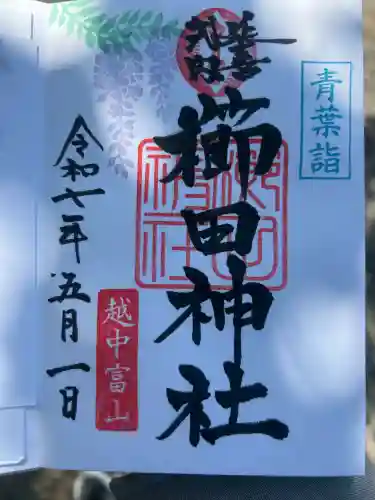 青葉詣
延喜
式内
櫛田神社
櫛田
神社
越中富山
令和七年五月一日